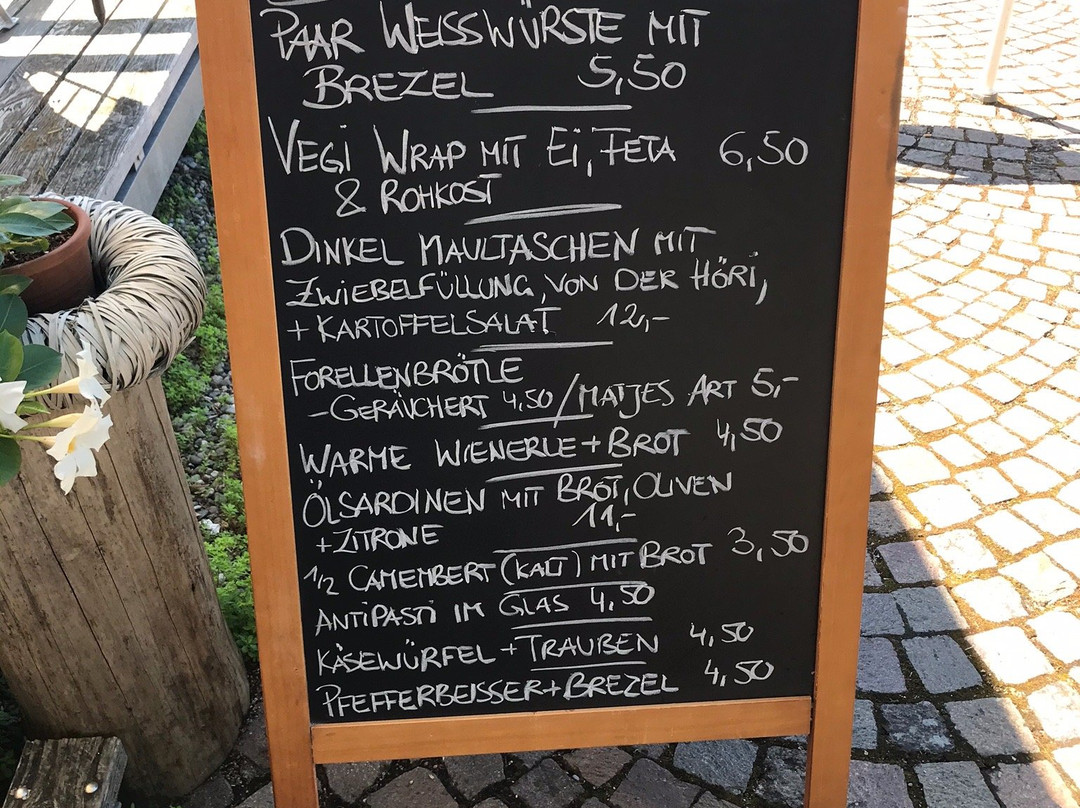 PAAR WEISSWÜRSTE MIT
BREZEL 5,50
VEGI WRAP MIT Ei, FETA 6,50
& ROHKOST
DINKEL MAULTASCHEN MIT
ZWIEBELFÜLLUNG, VON DER HÖRI,
+ KARTOFFELSALAT 12,-
FORELLENBRÖTLE
- GERÄUCHERT 4,50 / MATJES ART 5,-
WARME WIENERLE + BROT 4,50
ÖLSARDINEN MIT BROT, OLIVEN
+ ZITRONE 11,-
1/2 CAMEMBERT (KALT) MIT BROT 3,50
ANTIPASTI IM GLAS 4,50
KÄSEWÜRFEL + TRAUBEN 4,50
PFEFFERBEISSER + BREZEL 4,50